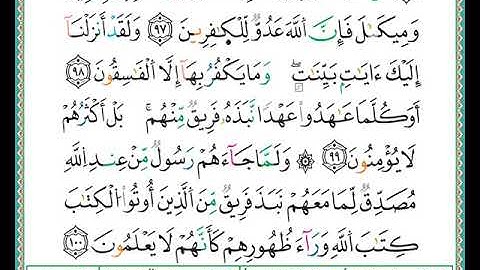 وَمِيكَىٰلَ فَإِنَّ ٱللَّهَ عَدُوٌّ لِّلْكَٰفِرِينَ ٩٧ وَلَقَدْ أَنزَلْنَآ
إِلَيْكَ ءَايَٰتٍۭ بَيِّنَٰتٍ ۖ وَمَا يَكْفُرُ بِهَآ إِلَّا ٱلْفَٰسِقُونَ ٩٨
أَوَكُلَّمَا عَٰهَدُوا۟ عَهْدًا نَّبَذَهُۥ فَرِيقٌ مِّنْهُم ۚ بَلْ أَكْثَرُهُمْ
لَا يُؤْمِنُونَ ٩٩ ۞ وَلَمَّا جَآءَهُمْ رَسُولٌ مِّنْ عِندِ ٱللَّهِ
مُصَدِّقٌ لِّمَا مَعَهُمْ نَبَذَ فَرِيقٌ مِّنَ ٱلَّذِينَ أُوتُوا۟ ٱلْكِتَٰبَ
كِتَٰبَ ٱللَّهِ وَرَآءَ ظُهُورِهِمْ كَأَنَّهُمْ لَا يَعْلَمُونَ ١٠٠